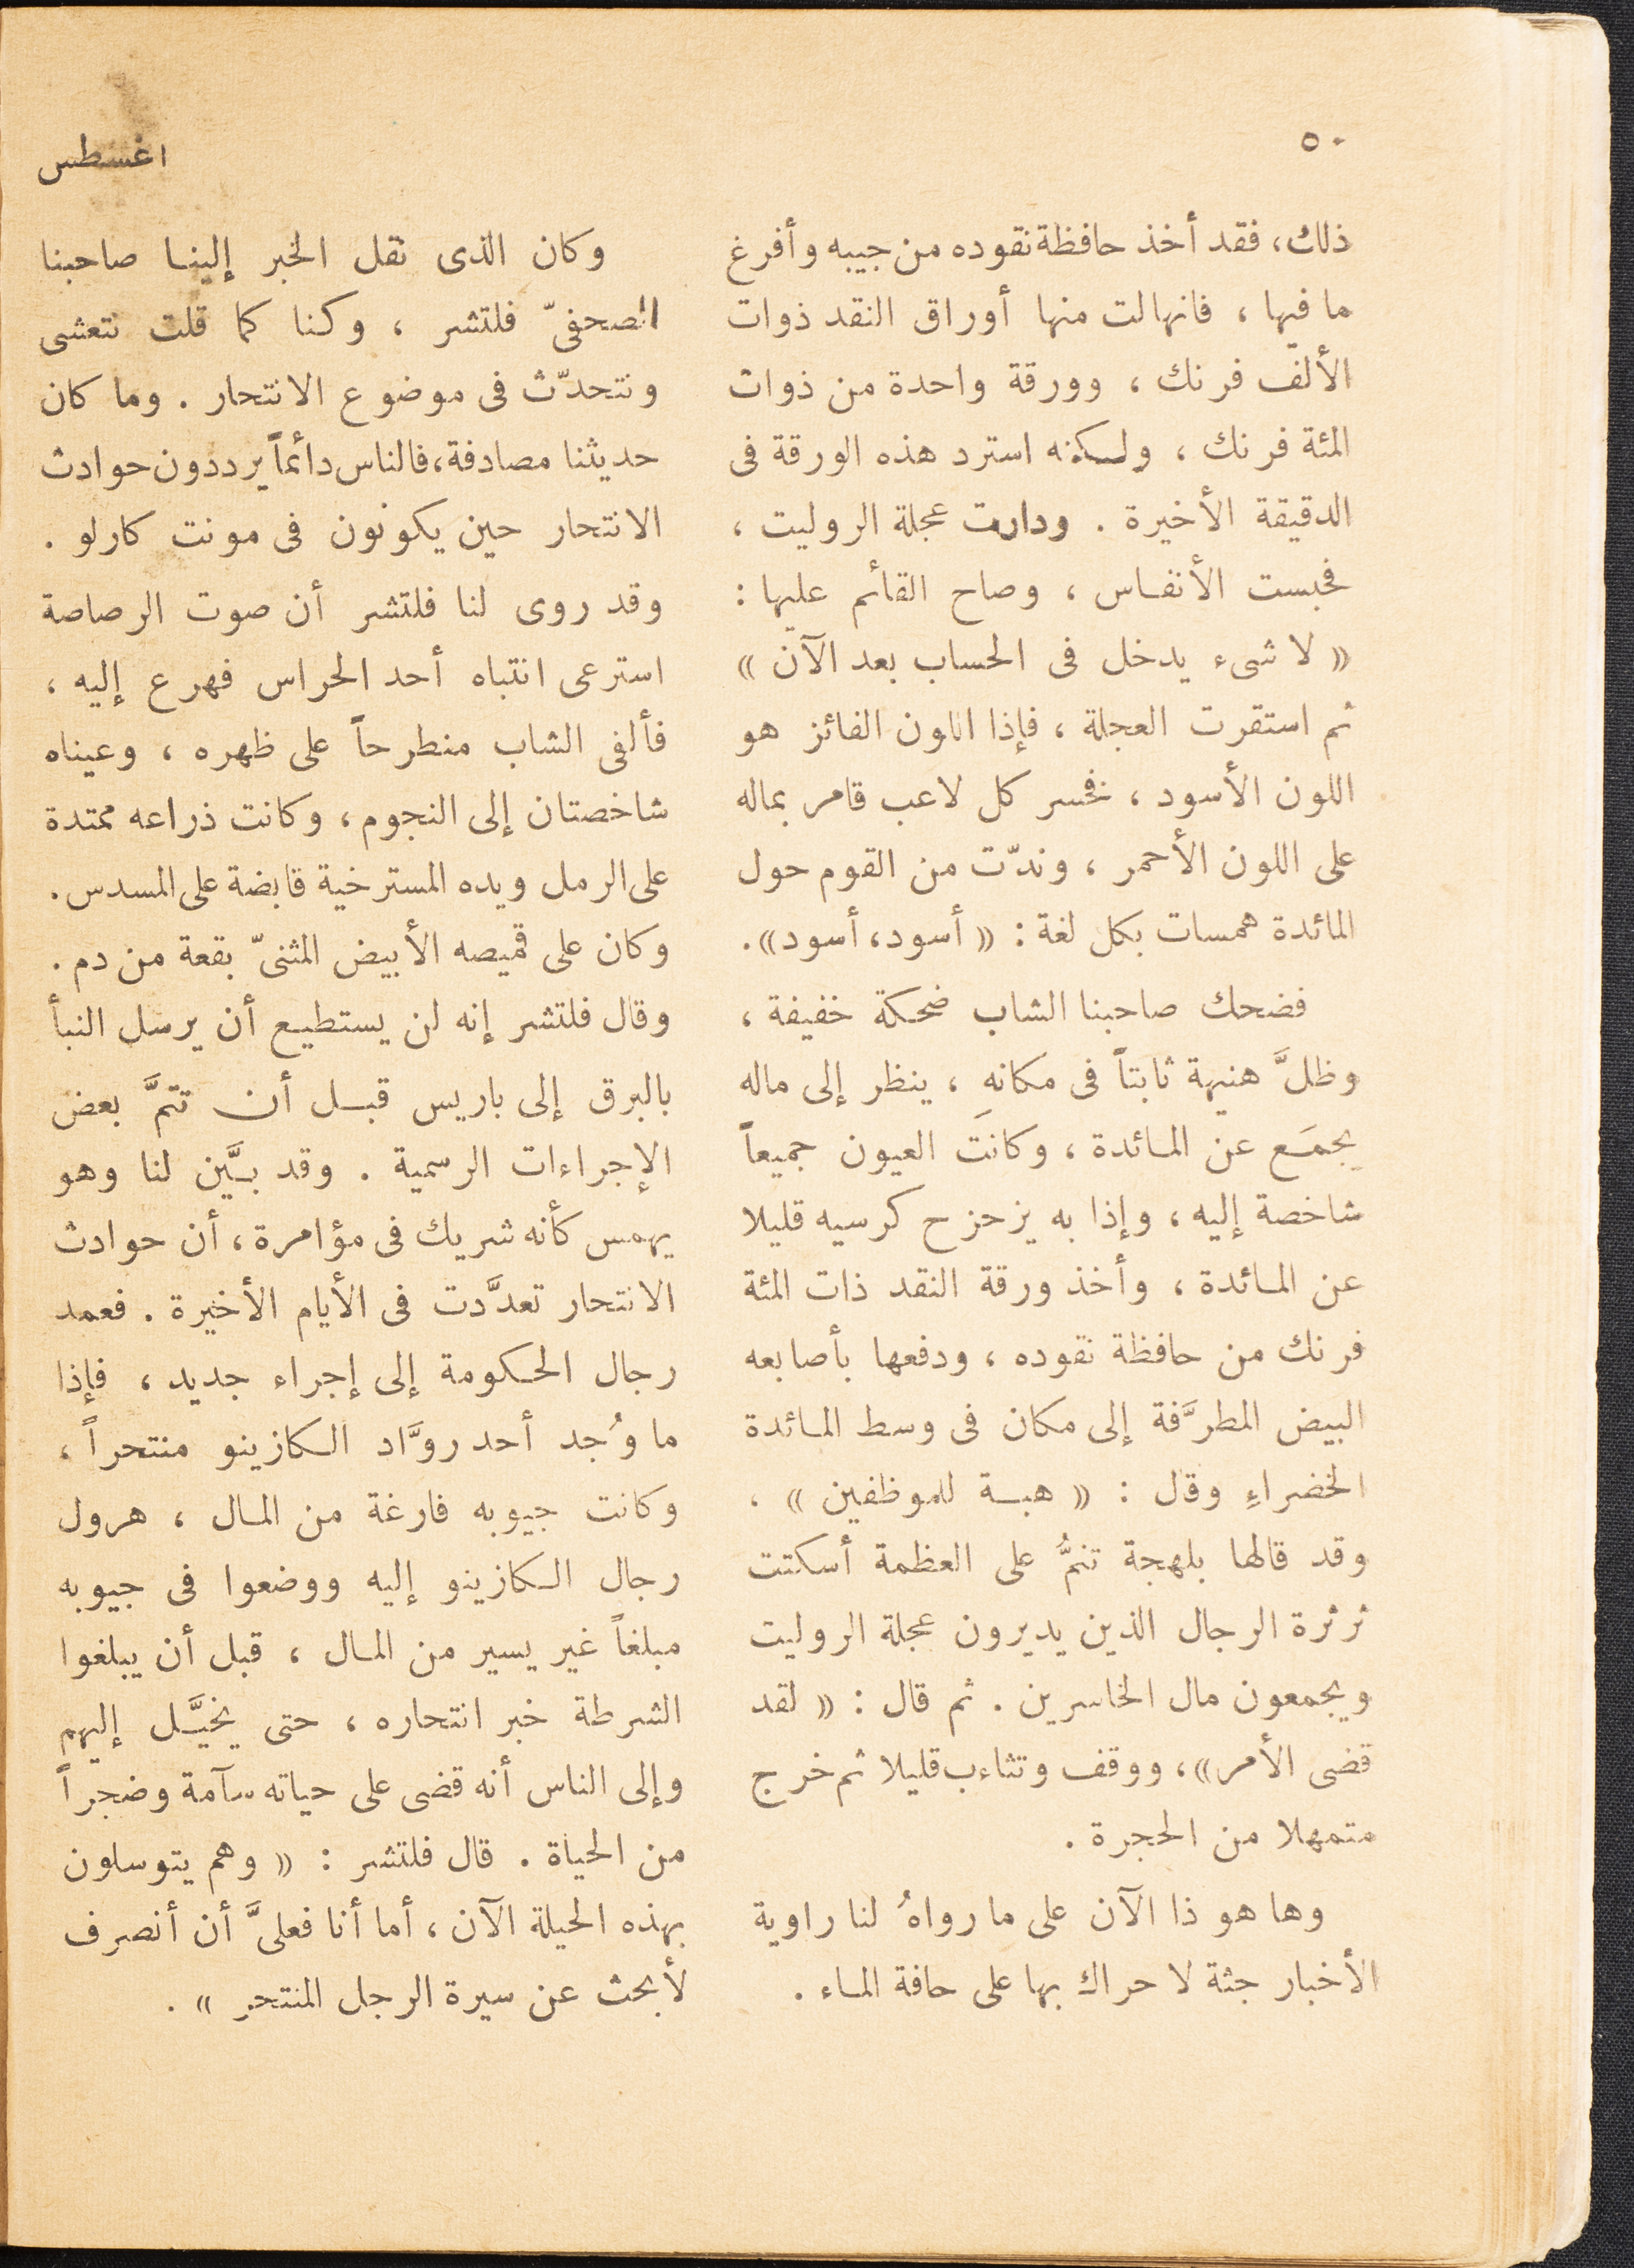 ٥٠
اغسطس
ذلك، فقد أخذ حافظة نقوده من جيبه وأفرغ
ما فيها ، فانهالت منها أوراق النقد ذوات
الألف فرنك ، وورقة واحدة من ذوات
المئة فرنك ، ولكنه استرد هذه الورقة فى
الدقيقة الأخيرة . ودارت عجلة الروليت ،
فحبست الأنفاس ، وصاح القائم عليها :
« لا شىء يدخل فى الحساب بعد الآن »
ثم استقرت العجلة ، فإذا اللون الفائز هو
اللون الأسود ، فخسر كل لاعب قامر بماله
على اللون الأحمر ، وندّت من القوم حول
المائدة همسات بكل لغة : « أسود، أسود» .
فضحك صاحبنا الشاب ضحكة خفيفة ،
وظلَّ هنيهة ثابتاً فى مكانه ، ينظر إلى ماله
يجمَع عن المائدة ، وكانت العيون جميعاً
شاخصة إليه ، وإذا به يزحزح كرسيه قليلا
عن المائدة ، وأخذ ورقة النقد ذات المئة
فرنك من حافظة نقوده ، ودفعها بأصابعه
البيض المطرَّفة إلى مكان فى وسط المائدة
الخضراءِ وقال : « هبة للموظفين » ،
وقد قالها بلهجة تنمُّ على العظمة أسكتت
ثرثرة الرجال الذين يديرون عجلة الروليت
ويجمعون مال الخاسرين . ثم قال : « لقد
قضى الأمر» ، ووقف وتثاءب قليلا ثم خرج
متمهلا من الحجرة .
وها هو ذا الآن على ما رواهُ لنا راوية
الأخبار جثة لا حراك بها على حافة الماء .
وكان الذى نقل الخبر إلينا صاحبنا
الصحفىّ فلتشر ، وكنا كما قلت نتعشى
ونتحدّث فى موضوع الانتحار . وما كان
حديثنا مصادفة، فالناس دائماً يرددون حوادث
الانتحار حين يكونون فى مونت كارلو .
وقد روى لنا فلتشر أن صوت الرصاصة
استرعى انتباه أحد الحراس فهرع إليه ،
فألفى الشاب منطرحاً على ظهره ، وعيناه
شاخصتان إلى النجوم ، وكانت ذراعه ممتدة
على الرمل ويده المسترخية قابضة على المسدس .
وكان على قميصه الأبيض المثنىّ بقعة من دم .
وقال فلتشر إنه لن يستطيع أن يرسل النبأ
بالبرق إلى باريس قبل أن تتمَّ بعض
الإجراءات الرسمية . وقد بيَّن لنا وهو
يهمس كأنه شريك فى مؤامرة ، أن حوادث
الانتحار تعدَّدت فى الأيام الأخيرة . فعمد
رجال الحكومة إلى إجراء جديد ، فإذا
ما وُجد أحد روَّاد الكازينو منتحراً ،
وكانت جيوبه فارغة من المال ، هرول
رجال الكازينو إليه ووضعوا فى جيوبه
مبلغاً غير يسير من المال ، قبل أن يبلغوا
الشرطة خبر انتحاره ، حتى يخيَّل إليهم
وإلى الناس أنه قضى على حياته سآمة وضجراً
من الحياة . قال فلتشر : « وهم يتوسلون
بهذه الحيلة الآن ، أما أنا فعلىَّ أن أنصرف
لأبحث عن سيرة الرجل المنتحر » .